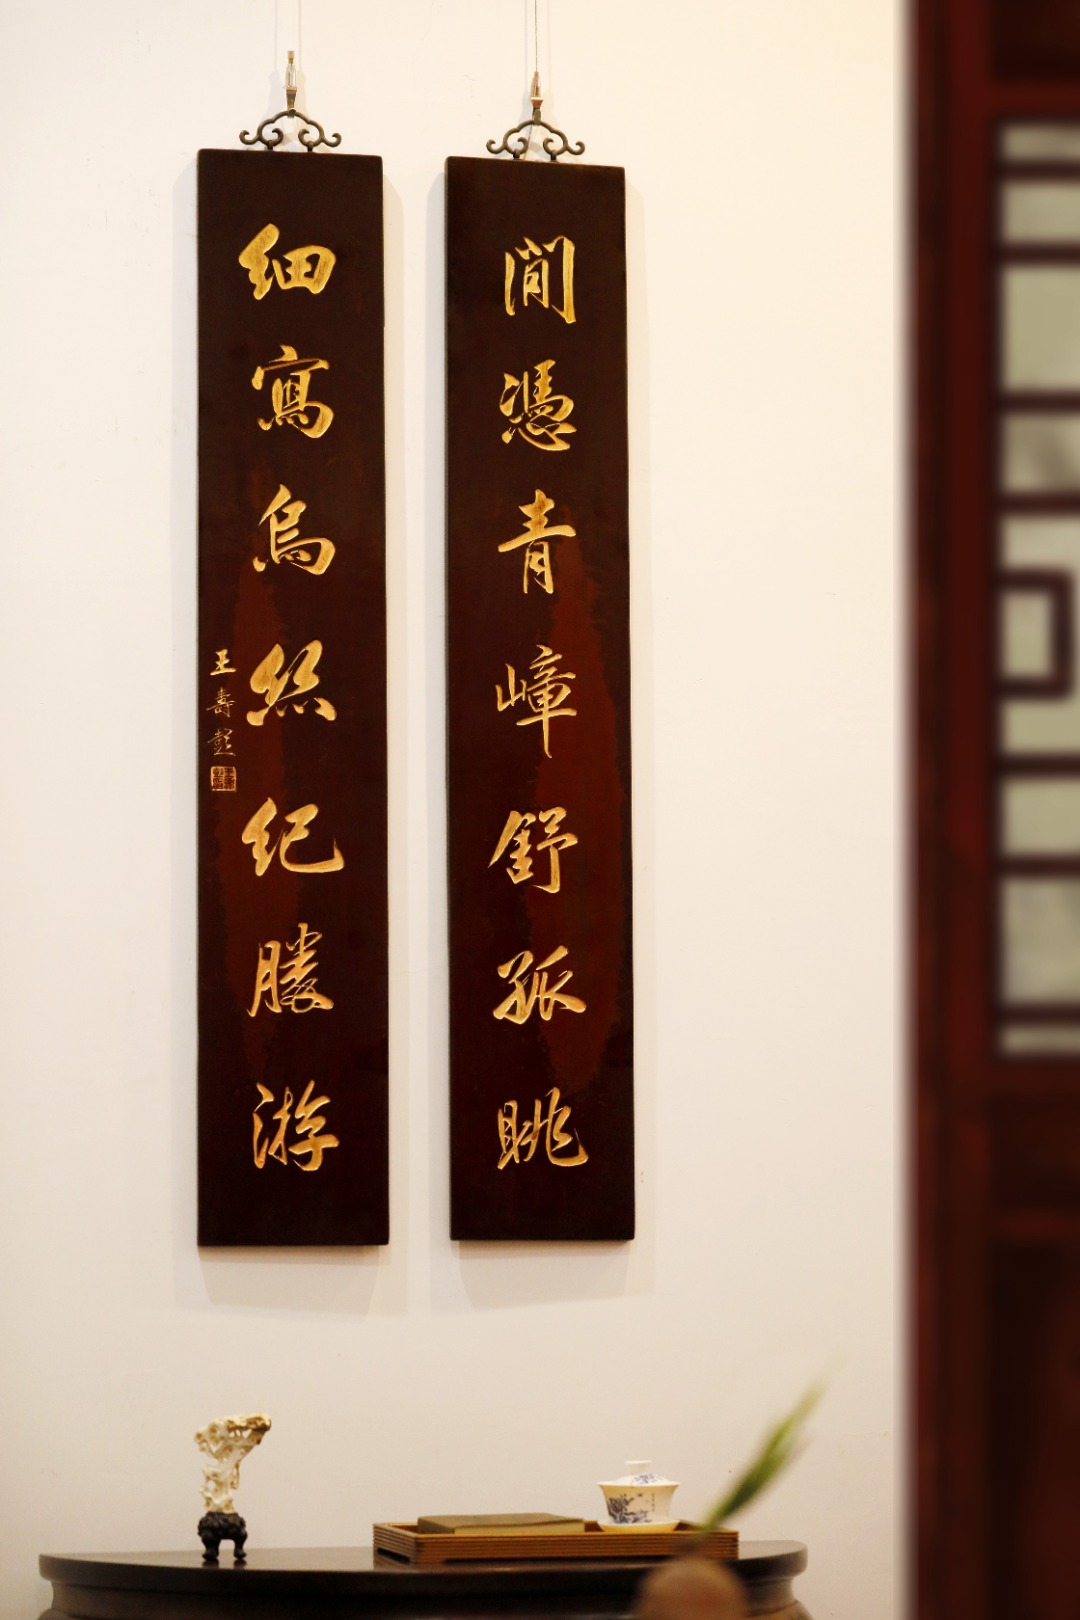 閒憑青嶂舒孤眺
細寫烏絲紀勝游
王壽彭